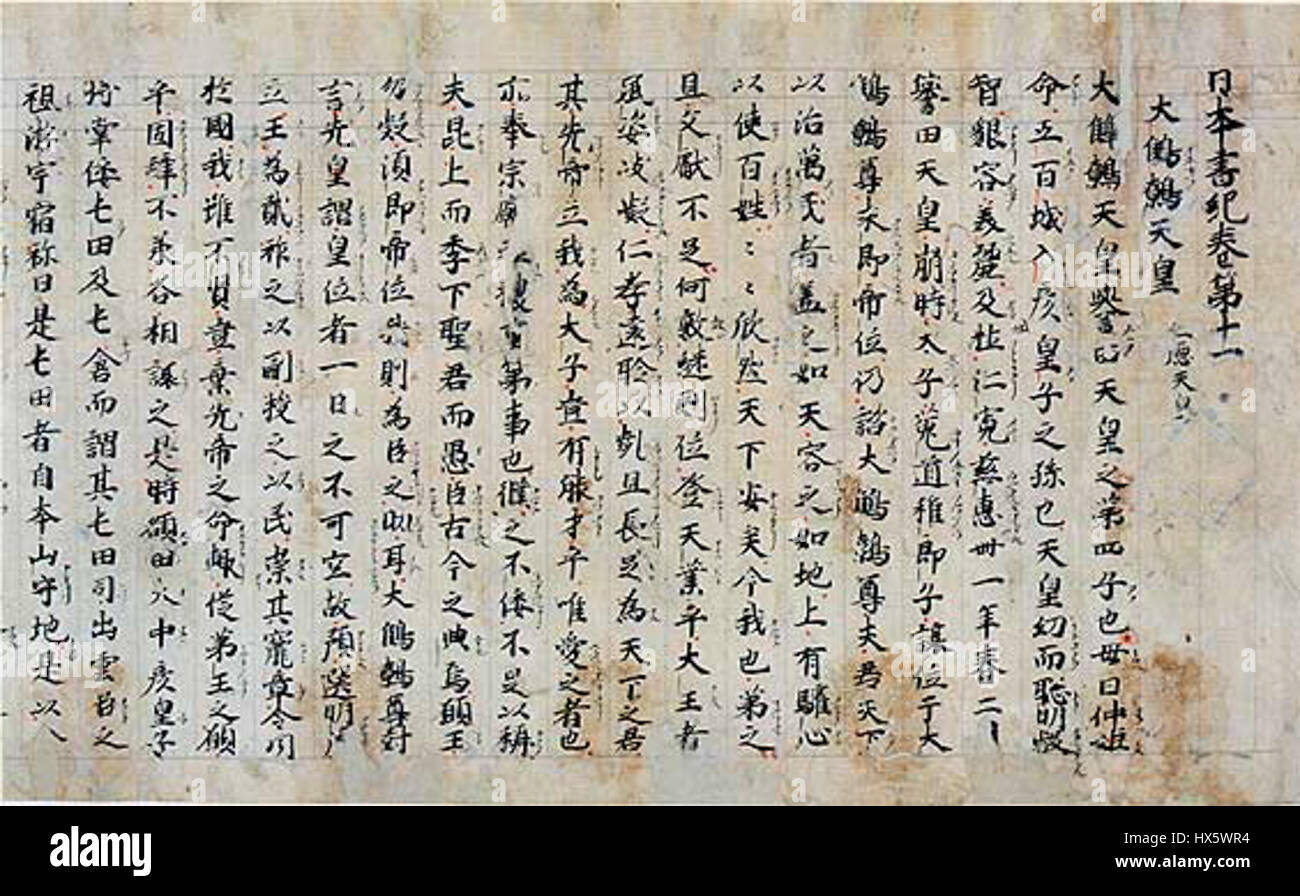 日本書紀巻第十一
大鷦鷯天皇
大鷦鷯天皇譽田天皇之第四子也母曰仲姫
命五百城入彦皇子之孫也天皇幼而聡明叡
智貌容美麗及壮仁寛慈恵卌一年春二
譽田天皇崩時太子菟道稚郎子讓位于大
鷦鷯尊未即帝位仍諮大鷦鷯尊夫君天下
以治萬民者盖之如天容之如地上有驩心
以使百姓〻〻欣然天下安矣今我也弟之
且文獻不足何敢継嗣位登天業乎大王者
風姿岐嶷仁孝遠聆以齒且長足為天下之君
其先帝立我為太子豈有能才乎唯愛之者也
亦奉宗廟事也僕之不佞不足以稱
夫昆上而季下聖君而愚臣古今之典焉願王
勿疑須即帝位我則為臣之助耳大鷦鷯尊對
言先皇謂皇位者一日之不可空故預選明
立王為貳祚之以嗣授之以民崇其寵章令聞
於國我雖不賢豈棄先帝之命輙從弟王之願
乎固辞不承各相讓之是時額田大中彦皇子
将掌倭屯田及屯倉而謂其屯田司出雲臣之
祖淤宇宿祢曰是屯田者自本山守地是以
alamy
Image ID: HX5WR4
www.alamy.com